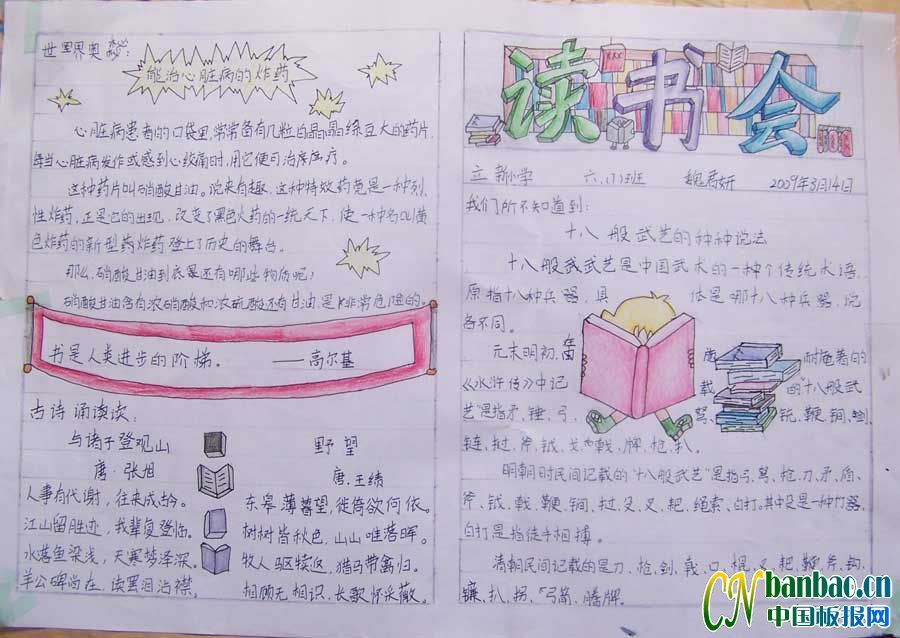 世界奥秘：
能治心脏病的炸药
心脏病患者的口袋里,常常备有几粒白晶晶绿豆大的药片,
每当心脏病发作或感到心绞痛时,用它便可治疗医疗。
这种药片叫硝酸甘油。说来有趣,这种特效药竟是一种烈
性炸药,正是它的出现,改变了黑色火药的一统天下,使一种名叫黄
色炸药的新型药炸药登上了历史的舞台。
那么,硝酸甘油到底是还有哪些物质呢?
硝酸甘油含有浓硝酸和浓硫酸还有甘油,是非常危险的。
书是人类进步的阶梯。 ——高尔基
古诗诵读读：
与诸子登观山
唐·张旭
人事有代谢，往来成古今。
江山留胜迹，我辈复登临。
水落鱼梁浅，天寒梦泽深。
羊公碑尚在，读罢泪沾襟。
野望
唐.王绩
东皋薄暮望，徙倚欲何依。
树树皆秋色，山山唯落晖。
牧人驱犊返，猎马带禽归。
相顾无相识，长歌怀采薇。
读书会
立新小学 六.(1)班 魏 妍 2009年3月14日
我们所不知道到：
十八般武艺的种种说法
十八般武武艺是中国武术的一种个传统术语,
原指十八种兵器,具体是哪十八种兵器,说
各不同。
元末明初,由唐 耐庵著的
《水浒传》中记载的"十八般武
艺"是指矛、锤、弓、弩、铳、鞭、锏、剑、
链、挝、斧、钺、戈、戟、牌、枪、扒。
明朝时民间记载的"十八般武艺"是指弓、弩、枪、刀、矛、盾、
斧、钺、戟、鞭、锏、挝、殳、叉、耙、绳索、白打,其中殳是一种竹器,
白打是指徒手相搏。
清朝民间记载的是刀、枪、剑、戟、口、棍、叉、耙、鞭、斧、钩、
镰、扒、拐、弓箭、藤牌。
CN banbao.cn
中国板报网